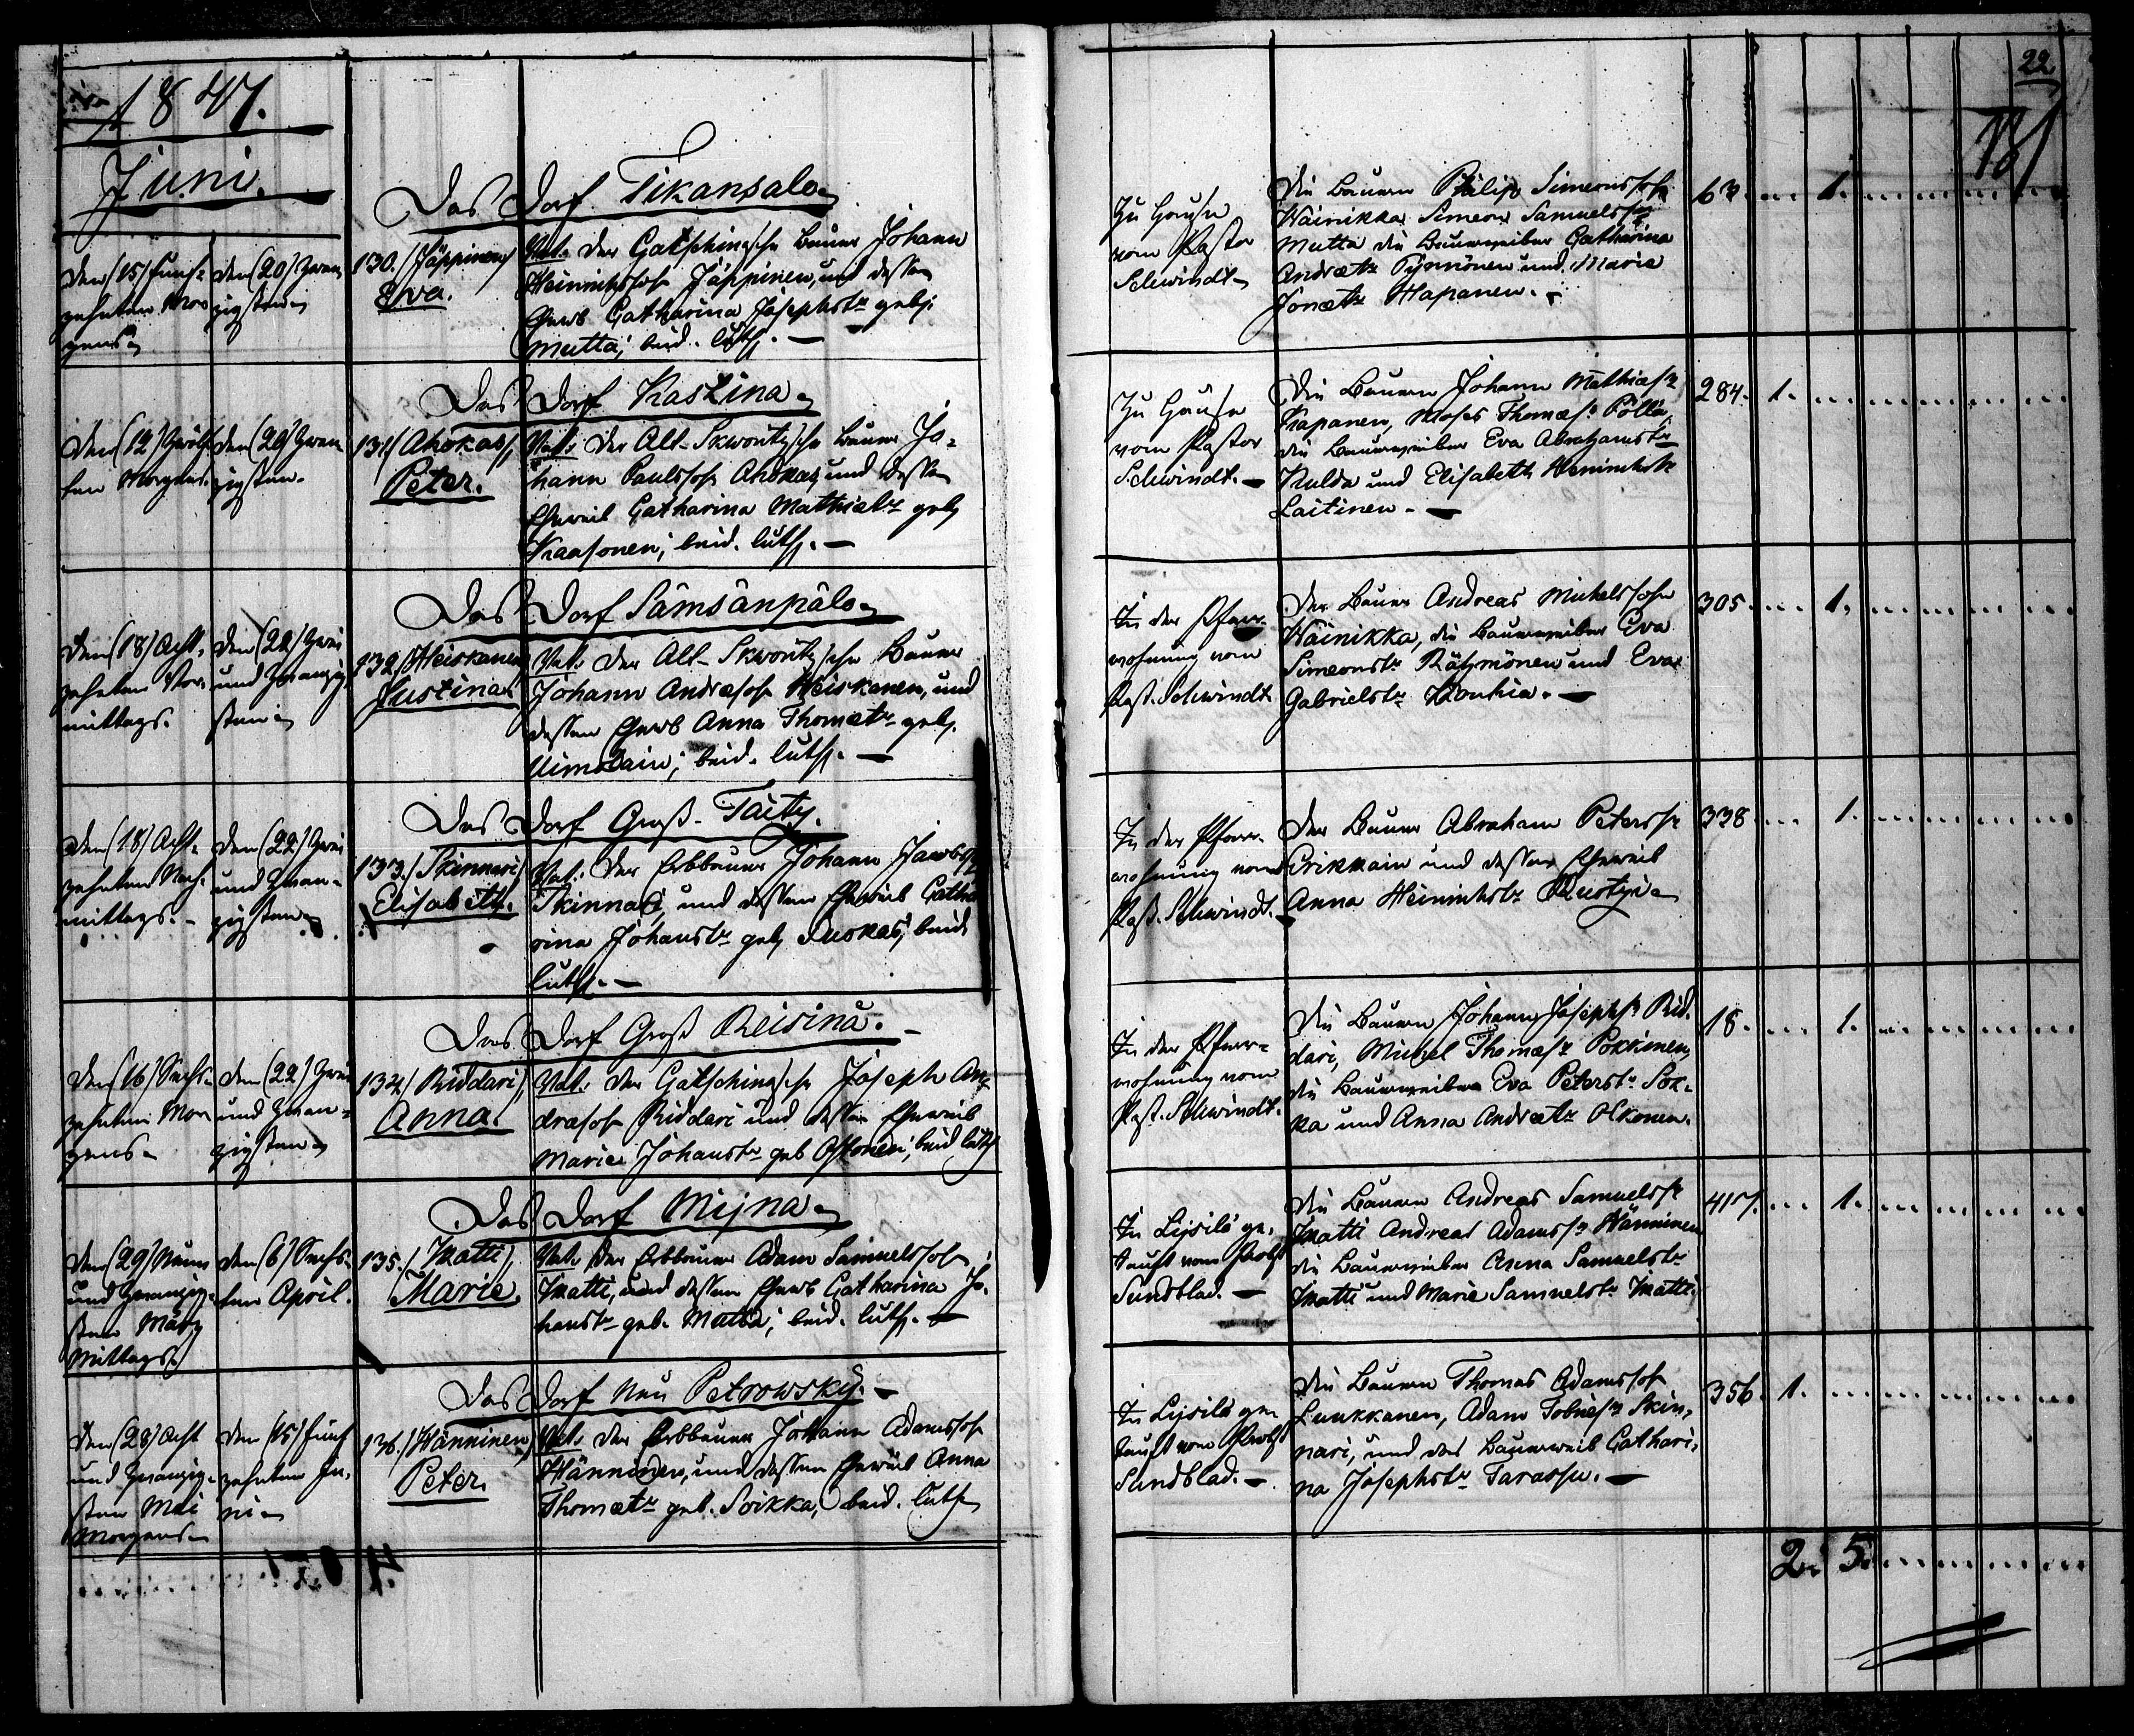 1847.
Juni.
Das Dorf Tikansalo
den (15) Fünf-
zehnten Mor-
gens
den (20) Zwan-
zigsten
130. (Jäppinen)
Eva.
Vat. der Gatschinasche Bauer Johann
Heinrichssohn Jäppinen, und dessen
Ehew. Catharina Josephstr geb.
Mutta, beid. luth.
Das Dorf Kaskina
den (12) Zwölf-
ten Morgens.
den (20) Zwan-
zigsten.
131. (Ahokas)
Peter.
Vat. der Alt-Skworitzsche Bauer Jo-
hann Paulssohn Ahokas und dessen
Eheweib Catharina Mathiaetr geb.
Kaasonen, beid. luth.
Das Dorf Sämsänpälo
den (18) Acht-
zehnten Vor-
mittags.
den (22) Zwei
und Zwanzig-
sten
132. (Heiskanen)
Justina.
Vat. der Alt-Skworitzsche Bauer
Johann Andraesohn Heiskanen, und
dessen Ehew. Anna Thomaetr geb.
Uimolain, beid. luth.
Das Dorf Groß-Taity.
den (18) Acht-
zehnten Nach-
mittags.
den (22) Zwei
und Zwan-
zigsten
133. (Skinnari)
Elisabeth.
Vat. der Erbbauer Johann Jacobs
Skinnari, und dessen Eheweib Catha
rina Johanstr geb. Suokas, beide
luth.
Das Dorf Groß Reisinä.
den (16) Sechs-
zehnten Mor-
gens
den (22) Zwei
und Zwan-
zigsten
134. (Riddari)
Anna.
Vat. der Gatschinasche Joseph An-
draesohn Riddari und dessen Eheweib
Marie Johanstr geb. beid. luth
Das Dorf Mijna
den (29) Neun
und Zwanzig-
sten März
Mittags.
den (6) Sechs-
ten April.
135. (Matti)
Marie.
Vat. der Erbbauer Adam Samuelssohn
Matti, und dessen Ehew. Catharina Jo-
hanstr geb. beid. luth.
Das Dorf Neu Petrowsky.
den (28) Acht
und Zwanzig-
sten Mai
Morgens
den (15) Fünf-
zehnten Ju-
ni
136. (Hänninen)
Peter.
Vat. der Erbbauer Johann Adamssohn
Hänninen, und dessen Eheweib Anna
Thomaetr geb. Soikka, beid. luth
22
Zu Hause
vom Pastor
Schwindt
Die Bauern Philip Simeonssohn
Wäinikka Simeon Samuelss
Mutta die Bauerweiber Catharina
Andraetr Pynnönen und Marie
Jonaetr Hapanen.
63 1.
Zu Hause
vom Pastor
Schwindt.
Die Bauern Johann Mathiaesn
Kapanen, Moses Thomaesn Pöllä,
die Bauerweiber Eva Abrahamstr
Kulda und Elisabeth Heinrichstr
Laitinen.
284. 1.
In der Pfarr-
wohnung vom
Past. Schwindt
Der Bauer Andreas Michelssohn
Wäinikka, die Bauerweiber Eva
Simeonstr Rähmönen und Eva
Gabrielstr Koukia.
305 1.
In der Pfarr-
wohnung vom
Past. Schwindt.
Der Bauer Abraham Peterss
Erikkain und dessen Eheweib
Anna Heinrichstr
338 1.
In der Pfarr-
wohnung vom
Past. Schwindt.
Die Bauern Johann Josephsn Rid-
dari, Michel Thomaesn Pokkinen,
die Bauerweiber Eva Peterstr Sok-
ka und Anna Andraetr Olkonen.
18. 1.
In Lissilä ge-
tauft vom Probst
Sundblad.
Die Bauern Andreas Samuelssn
Matti Andreas Adamssn Hänninen
die Bauerweiber Anna Samuelstr
Matti und Marie Samuelstr Matti.
417. 1.
In Lissilä ge-
tauft vom Probst
Sundblad.
Die Bauern Thomas Adamssohn
Luukkanen, Adam Tobiaesn Skin-
nari, und das Bauerweib Cathari-
na Josephstr Tarassu.
356. 1.
2. 5.